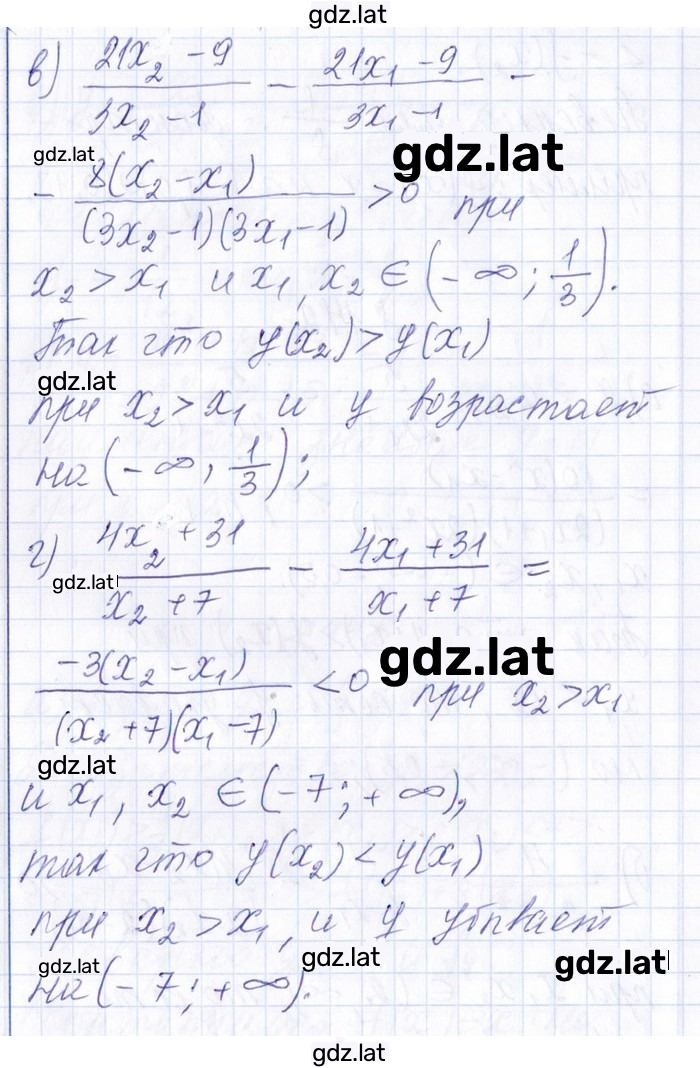 gdz.lat
в) (21x₂ - 9)/(3x₂ - 1) - (21x₁ - 9)/(3x₁ - 1) -
gdz.lat
gdz.lat
- 8(x₂ - x₁)/((3x₂ - 1)(3x₁ - 1)) > 0 при
x₂ > x₁ и x₁, x₂ ∈ (-∞; 1/3).
Так что y(x₂) > y(x₁)
gdz.lat
при x₂ > x₁ и y возрастает
на (-∞, 1/3);
г) (4x₂ + 31)/(x₂ + 7) - (4x₁ + 31)/(x₁ + 7) =
gdz.lat
gdz.lat
-3(x₂ - x₁)/((x₂ + 7)(x₁ - 7)) < 0 при x₂ > x₁
gdz.lat
и x₁, x₂ ∈ (-7; +∞),
так что y(x₂) < y(x₁)
при x₂ > x₁, и y убывает
gdz.lat
gdz.lat
gdz.lat
на (-7; +∞).
gdz.lat